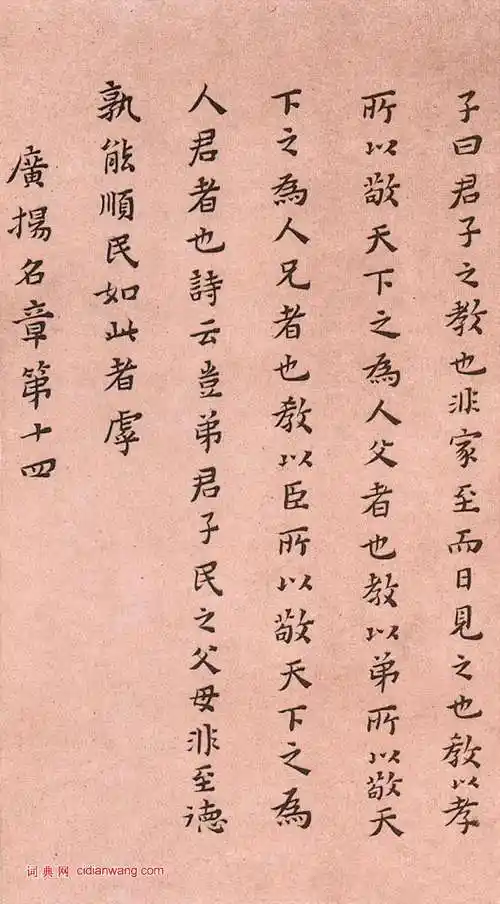 子曰君子之教也非家至而日見之也教以孝
所以敬天下之為人父者也教以弟所以敬天
下之為人兄者也教以臣所以敬天下之為
人君者也詩云豈弟君子民之父母非至德
孰能順民如此者虖
廣揚名章第十四
词典网 cidianwang.com